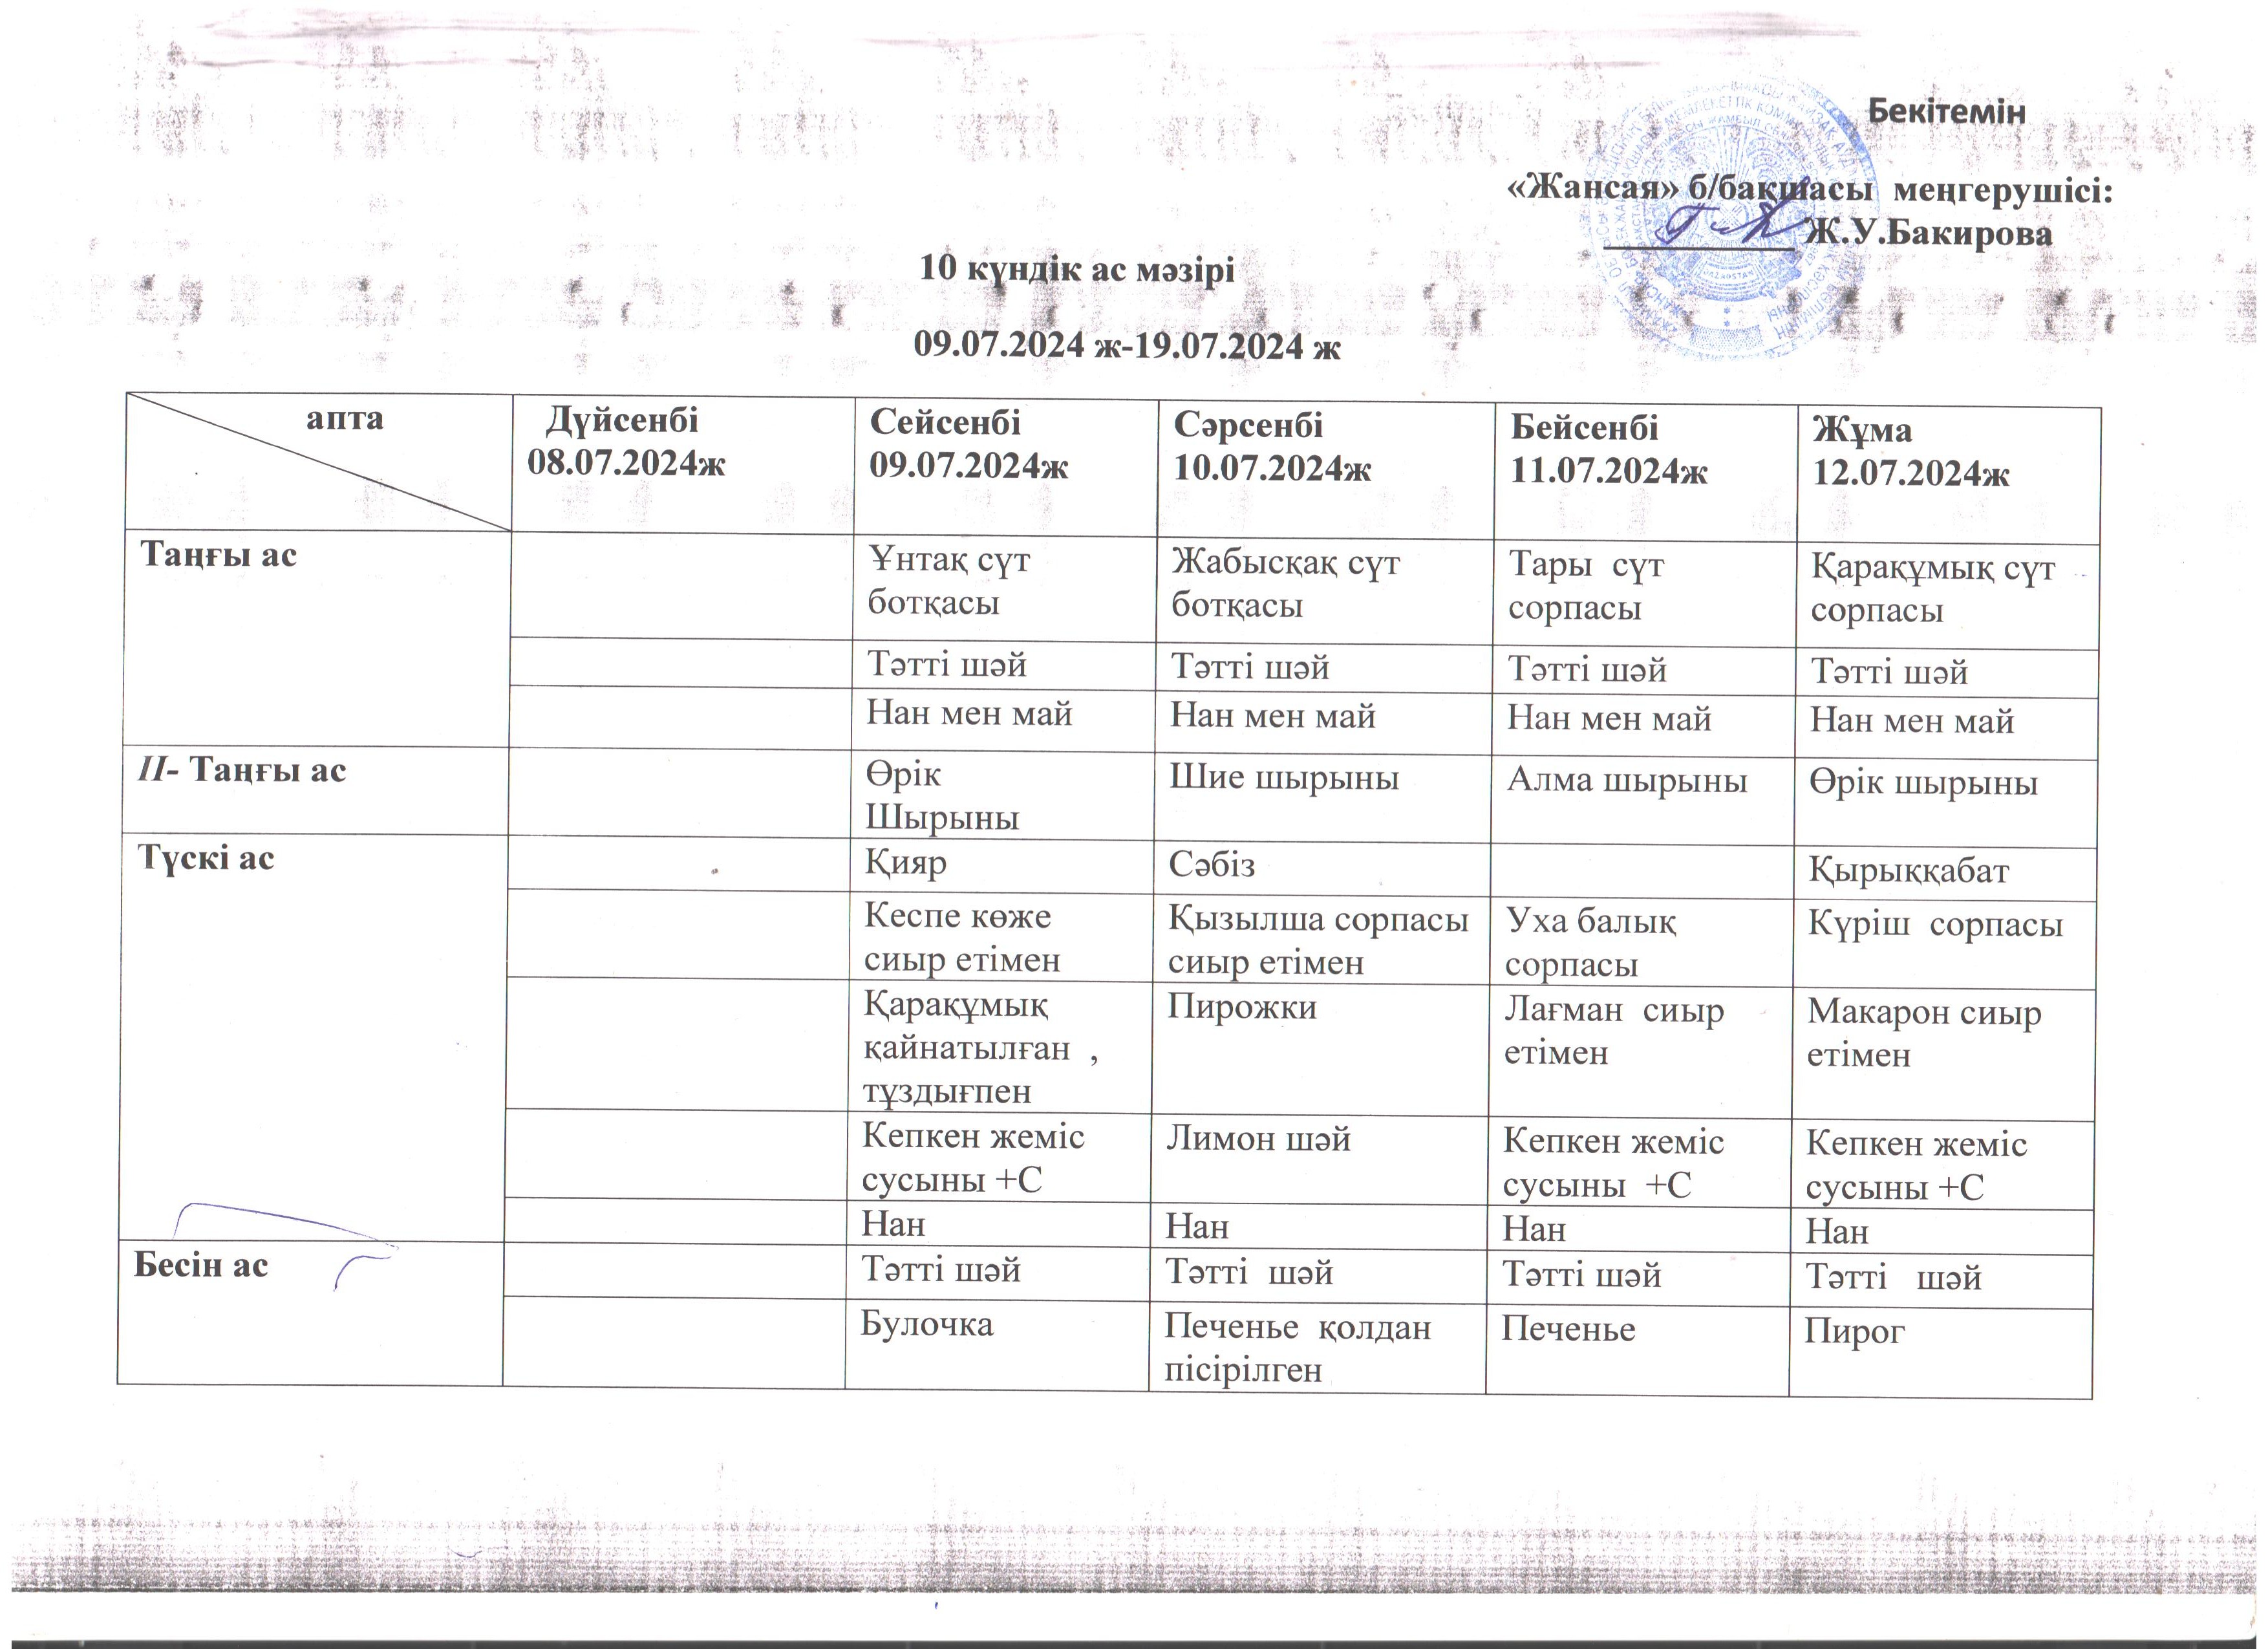 Бекітемін
«Жансая» б/бақшасы меңгерушісі:
Ж.У.Бакирова
10 күндік ас мәзірі
09.07.2024 ж-19.07.2024 ж
апта
Дүйсенбі
08.07.2024ж
Сейсенбі
09.07.2024ж
Сәрсенбі
10.07.2024ж
Бейсенбі
11.07.2024ж
Жұма
12.07.2024ж
Таңғы ас
Ұнтақ сүт
ботқасы
Жабысқақ сүт
ботқасы
Тары сүт
сорпасы
Қарақұмық сүт
сорпасы
Тәтті шәй
Тәтті шәй
Тәтті шәй
Тәтті шәй
Нан мен май
Нан мен май
Нан мен май
Нан мен май
II- Таңғы ас
Өрік
Шырыны
Шие шырыны
Алма шырыны
Өрік шырыны
Түскі ас
Қияр
Сәбіз
Қырыққабат
Кеспе көже
сиыр етімен
Қызылша сорпасы
сиыр етімен
Уха балық
сорпасы
Күріш сорпасы
Қарақұмық
қайнатылған ,
тұздығпен
Пирожки
Лағман сиыр
етімен
Макарон сиыр
етімен
Кепкен жеміс
сусыны +С
Лимон шәй
Кепкен жеміс
сусыны +С
Кепкен жеміс
сусыны +С
Нан
Нан
Нан
Нан
Бесін ас
Тәтті шәй
Тәтті шәй
Тәтті шәй
Тәтті шәй
Булочка
Печенье қолдан
пісірілген
Печенье
Пирог